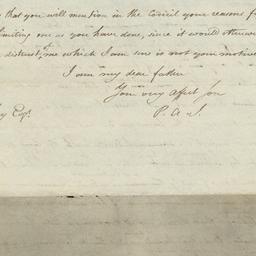 that you will mention in the Codicil your reasons f
limiting me as you have done, since it would otherwise
distrust of me which I am sure is not your motive
I am my dear father
Your very affect son
P. A. J.
Esqr.